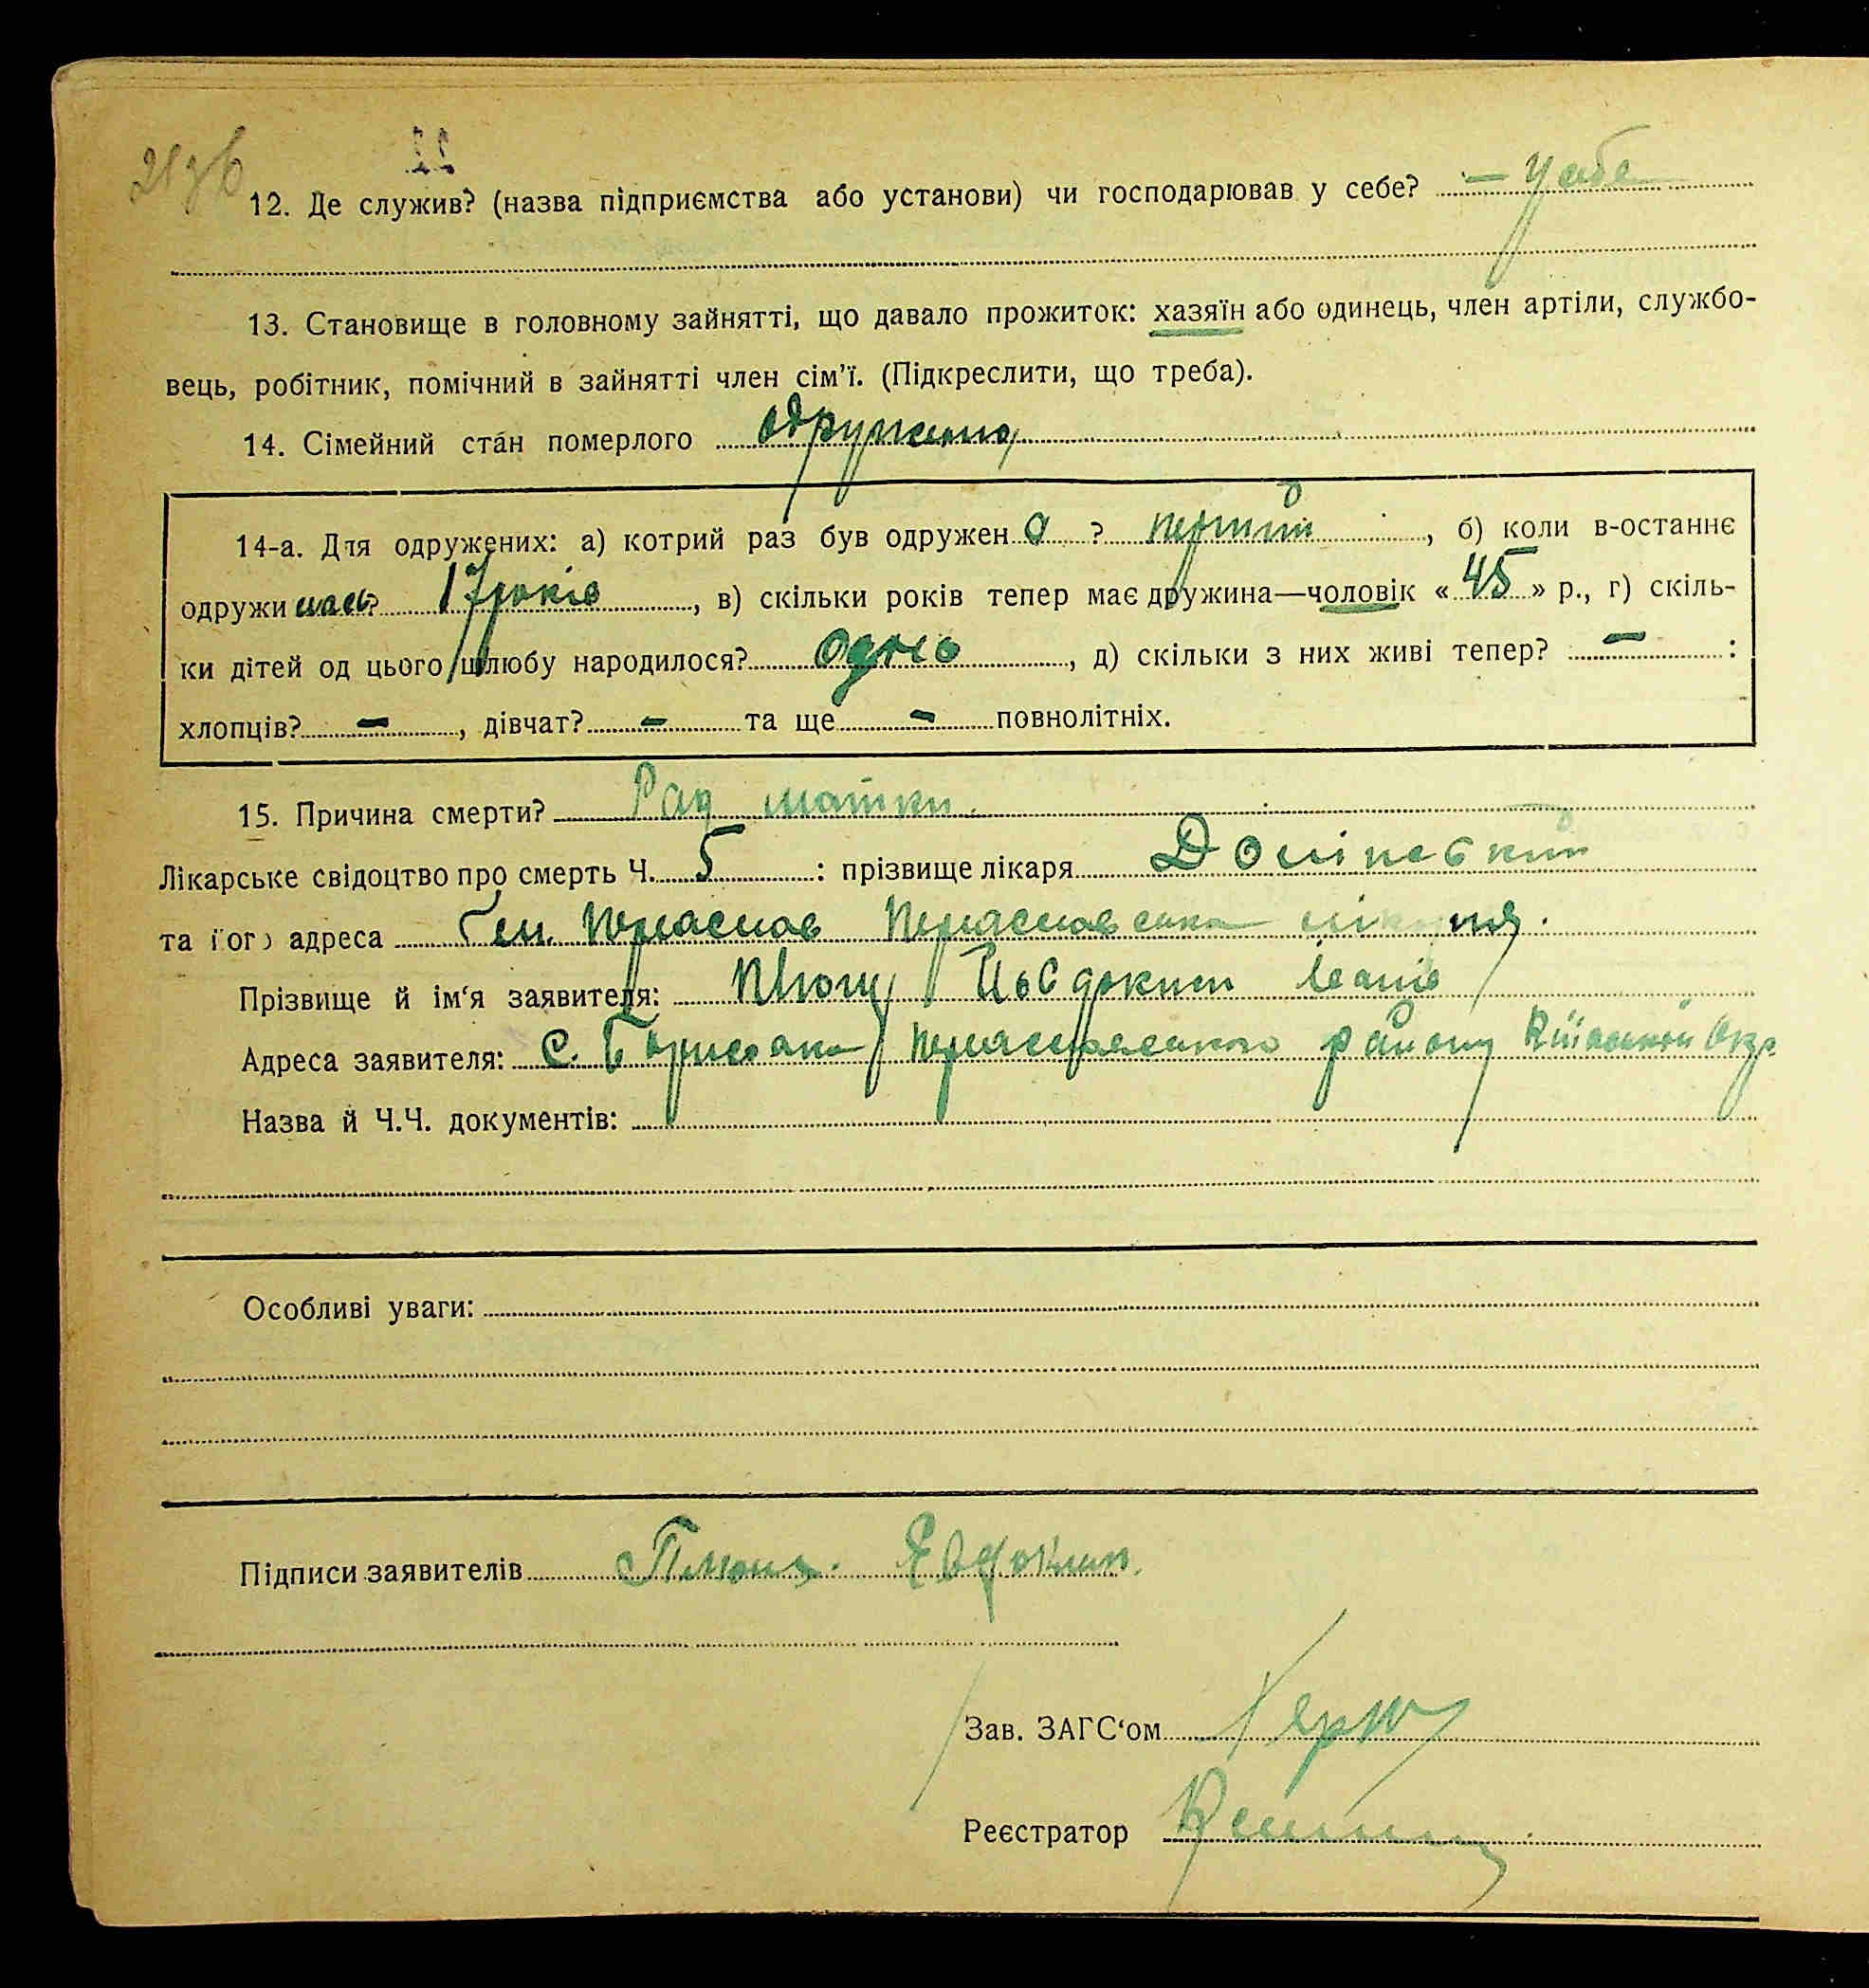 21зв
22
12. Де служив? (назва підприємства або установи) чи господарював у себе? – У себе
13. Становище в головному зайнятті, що давало прожиток: хазяїн або одинець, член артіли, службо-
вець, робітник, помічний в зайнятті член сім'ї. (Підкреслити, що треба).
14. Сімейний стан померлого одружена
14-а. Для одружених: а) котрий раз був одружен а ? перший, б) коли в-останнє
одружилась? 17 років, в) скільки років тепер має дружина—чоловік « 45 » р., г) скіль-
ки дітей од цього шлюбу народилося? Одно, д) скільки з них живі тепер? – :
хлопців? –, дівчат? – та ще – повнолітніх.
15. Причина смерти? Рак матки.
Лікарське свідоцтво про смерть Ч. 5 : прізвище лікаря
та його адреса Переяслав Переяславська
Прізвище й ім'я заявителя: Плющ Йовдоким
Адреса заявителя: С. району
Назва й Ч.Ч. документів:
Особливі уваги:
Підписи заявителів Плющ. Евдоким.
Зав. ЗАГС'ом
Реєстратор